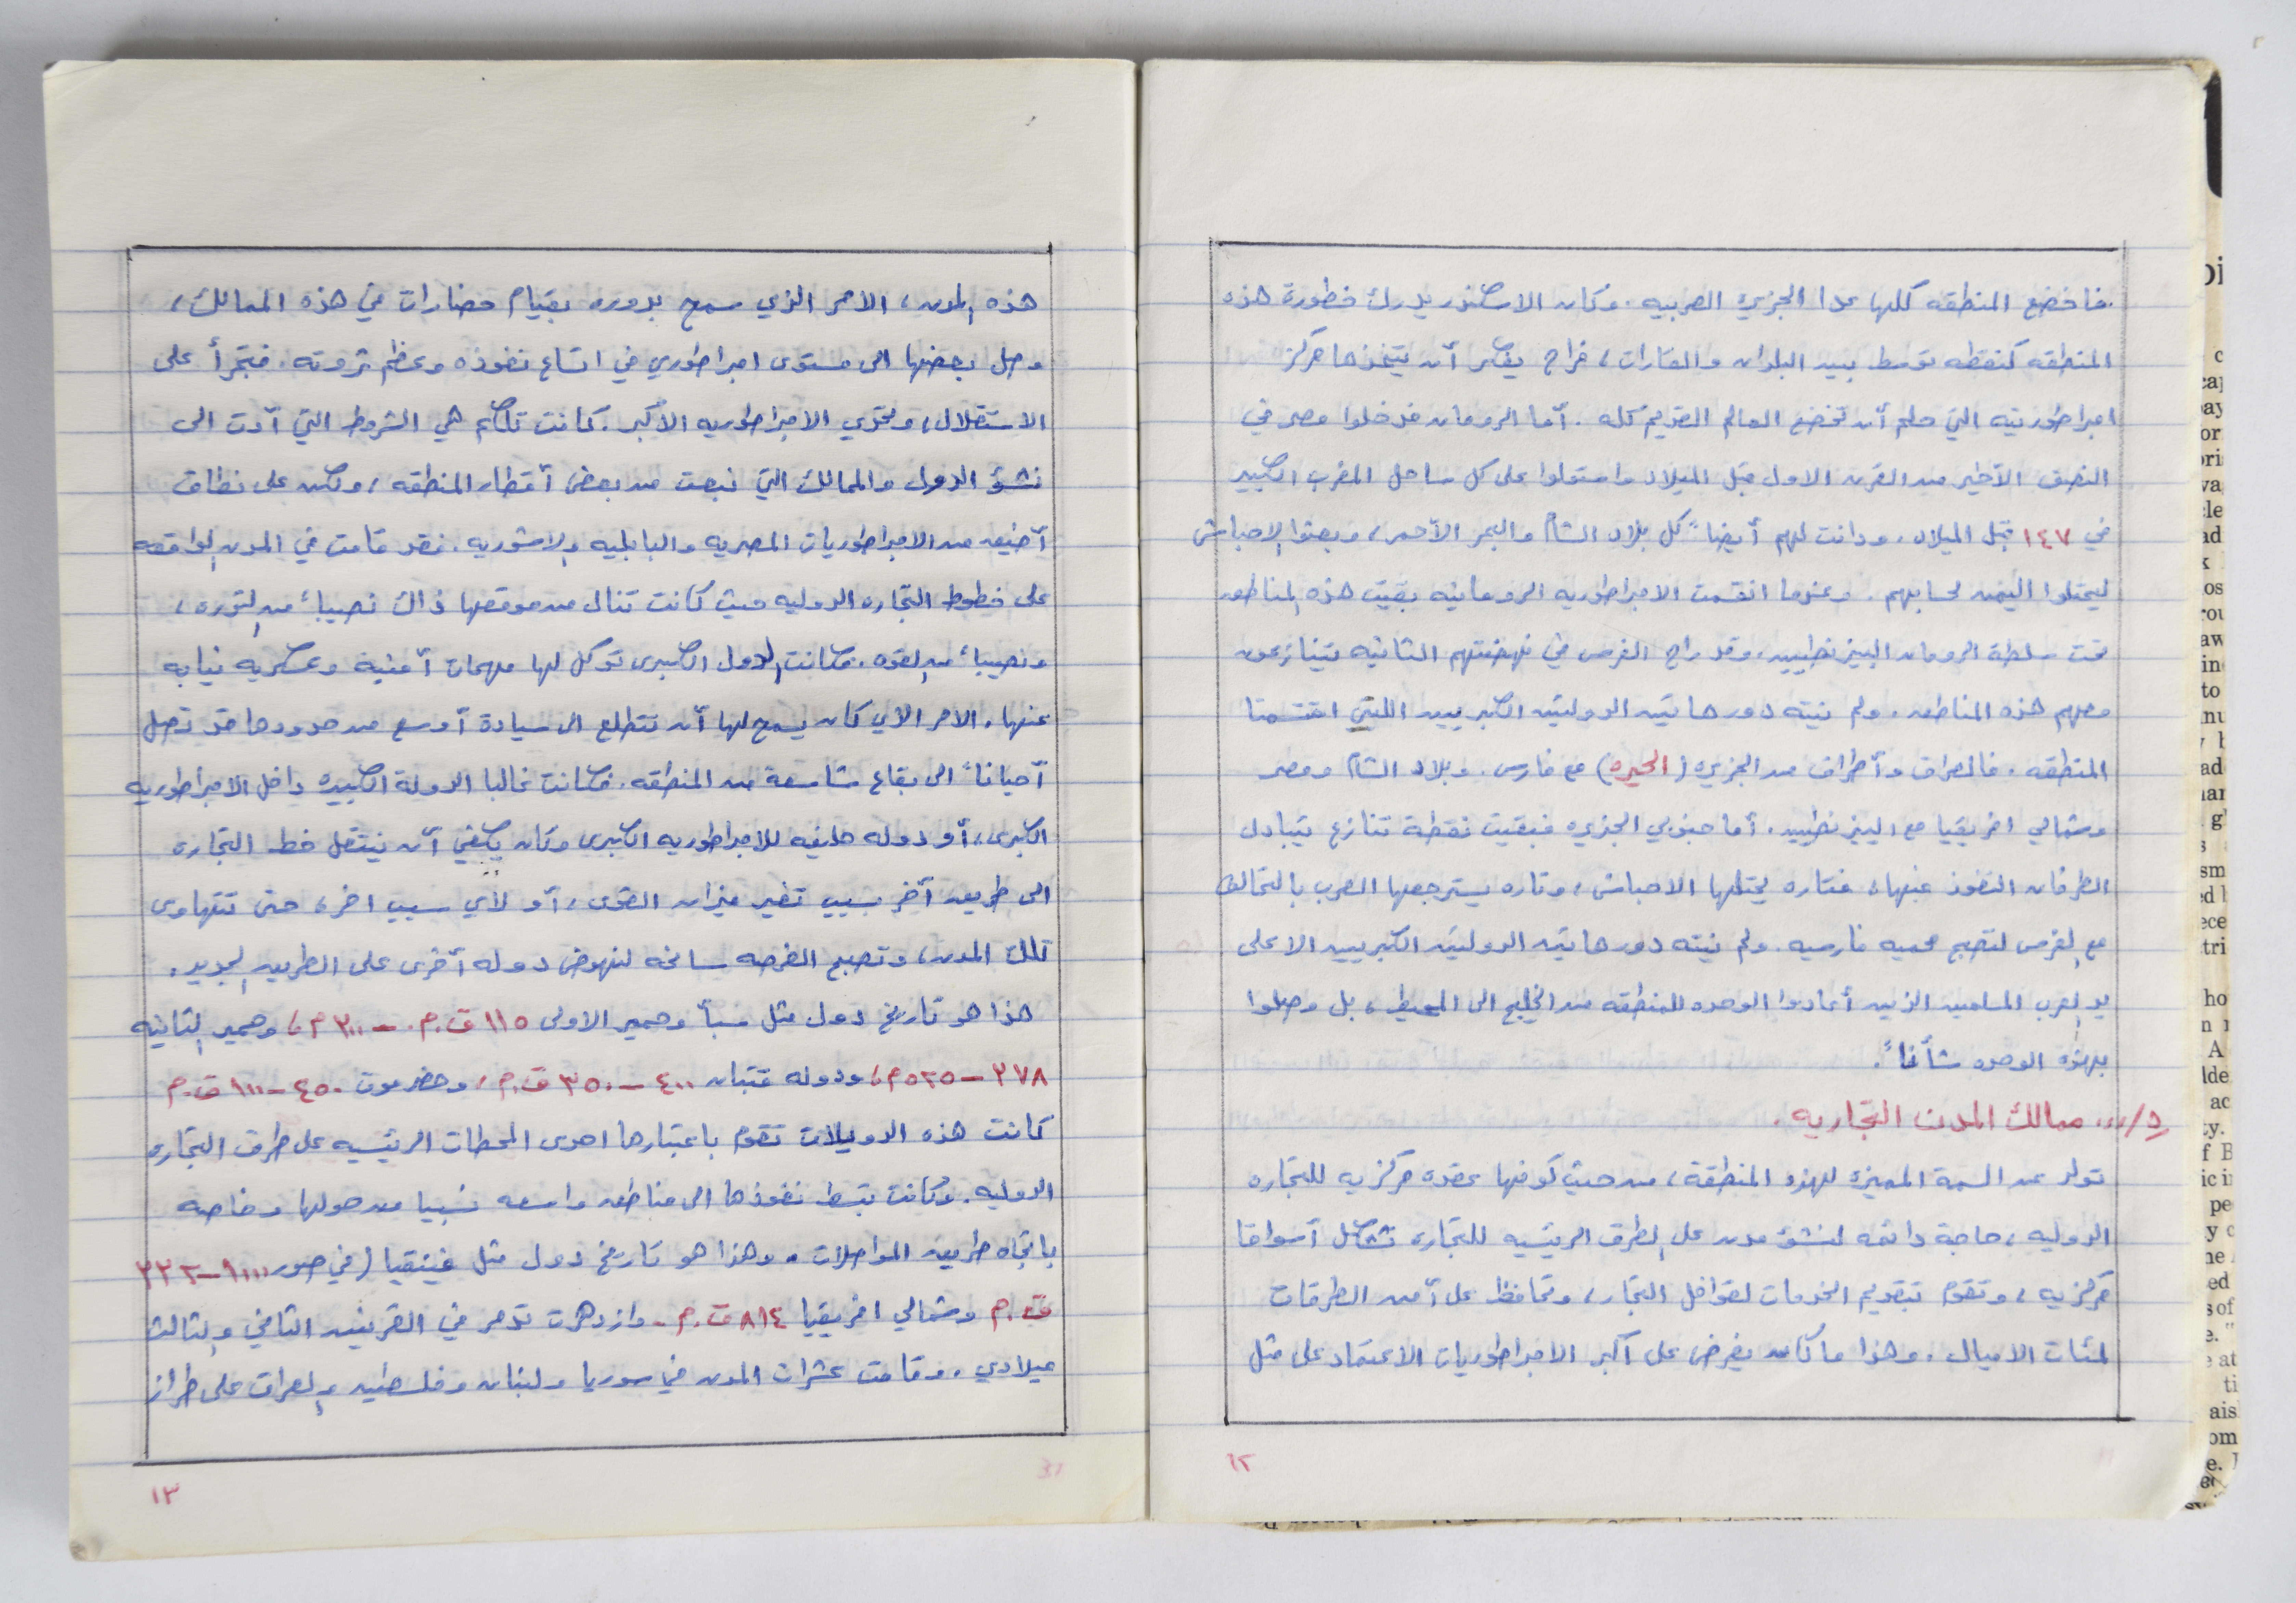 فاخضع المنطقه كلها عدا الجزيرة العربيه. وكان الاسكندر يدرك خطورة هذه
المنطقه كنقطه توسط بين البلدان والقارات، فراح يفكر أن يتخذها مركز
امبراطوريته التي حلم أن تخضع العالم القديم كله. أما الرومان فدخلوا مصر في
النصف الأخير من القرن الاول قبل الميلاد واستولوا على كل ساحل المغرب الكبير
في ١٤٧ قبل الميلاد. ودانت لهم أيضاً كل بلاد الشام والبحر الأحمر، وبعثوا الاحباش
ليحتلوا اليمن لحسابهم. وعندما انقسمت الامبراطوريه الرومانيه بقيت هذه المناطق
تحت سلطة الرومان البيزنطيين، وقد راح الفرس في نهضتهم الثانيه يتنازعون
معهم هذه المناطق. ولم ينته دور هاتين الدولتين الكبريين اللتي اقتسمتا
المنطقه. فالعراق وأطراف من الجزيره (الحيره) مع فارس. وبلاد الشام ومصر
وشمالي افريقيا مع البيزنطيين. أما جنوبي الجزيره فبقيت نقطة تنازع يتبادل
الطرفان النفوذ عنها، فتاره يحتلها الاحباش، وتاره يسترجعها العرب بالتحالف
مع الفرس لتصبح محميه فارسيه. ولم ينته دور هاتين الدولتين الكبريين الا على
يد العرب المسلمين الذين أعادوا الوحده للمنطقه من الخليج الى المحيط، بل وصلوا
بهذه الوحده شأناً.
د/ ممالك المدن التجاريه.
تولد عن السمة المميزة لهذه المنطقة، من حيث كونها عقده مركزيه للتجاره
الدوليه، حاجة دائمه لنشؤ مدن على الطرق الرئيسيه للتجاره تشكل أسواقا
مركزيه، وتقوم بتقديم الخدمات لقوافل التجار، وتحافظ على أمن الطرقات
لمئات الاميال. وهذا ما كان يفرض على أكبر الامبراطوريات الاعتماد على مثل
١٢
هذه المدن، الامر الذي سمح بدوره بقيام حضارات في هذه الممالك،
وصل بعضها الى مستوى امبراطوري في اتساع نفوذه وعظم ثروته. فتجرأ على
الاستقلال، وتحدي الامبراطوريه الأكبر. كانت تلكم هي الشروط التي أدت الى
نشؤ الدول والممالك التي نبعت من بعض أقطار المنطقه، ولكن على نطاق
أضيق من الامبراطوريات المصريه والبابليه والاشوريه. فقد قامت في المدن الواقعه
على خطوط التجاره الدوليه حيث كانت تنال من موقعها ذاك نصيباً من الثروه،
ونصيباً من القوه. فكانت الدول الكبرى توكل لها مهمات أمنية وعسكريه نيابه
عنها. الامر الذي كان يسمح لها أن تتطلع الى سيادة أوسع من حدودها قد تصل
أحياناً الى بقاع شاسعة من المنطقه. فكانت غالبا الدولة الكبيره داخل الامبراطوريه
الكبرى، أو دوله حليفه للامبراطوريه الكبرى وكان يكفي أن ينتقل خط التجاره
الى طريق آخر بسبب تغير ميزان القوى، أو لأي سبب اخر، حتى تتهاوى
تلك المدن، وتصبح الفرصه سانحه لنهوض دوله أخرى على الطريق الجديد.
هذا هو تاريخ دول مثل سبأ وحمير الاولى ١١٥ ق.م. – ٣٠٠ م، وحمير الثانيه
٢٧٨ – ٥٢٥م، ودوله قتبان ٤٠٠ – ٣٥٠ ق.م، وحضرموت ٤٥٠ – ١٠٠ ق.م
كانت هذه الدويلات تقوم باعتبارها احدى المحطات الرئيسيه على طرق التجاره
الدوليه. وكانت تبسط نفوذها الى مناطق واسعه نسبيا من حولها وخاصه
باتجاه طريق المواصلات. وهذا هو تاريخ دول مثل فينيقيا (في صور
ق.م وشمالي افريقيا ٨١٤ ق.م. وازدهرت تدمر في القرنين الثاني والثالث
ميلادي. وقامت عشرات المدن في سوريا ولبنان وفلسطين والعراق على طراز
١٣